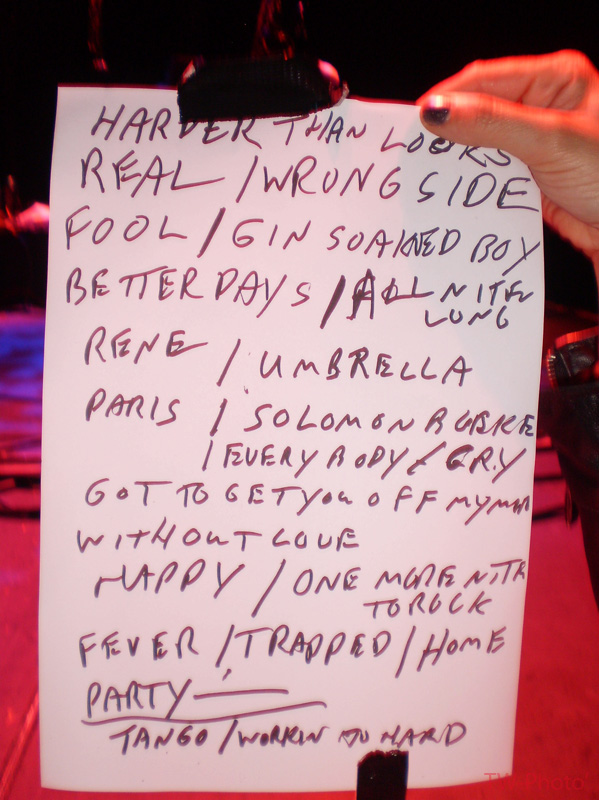 HARDER THAN LOOKS
REAL / WRONG SIDE
FOOL / GIN SOAKED BOY
BETTER DAYS / ALL NITE
LONG
RENE / UMBRELLA
PARIS / SOLOMON BURKE
/ EVERYBODY / CRY
GOT TO GET YOU OFF MY MIND
WITHOUT LOVE
HAPPY / ONE MORE NITE
TO ROCK
FEVER / TRAPPED / HOME
PARTY
TANGO / WORKIN TO HARD